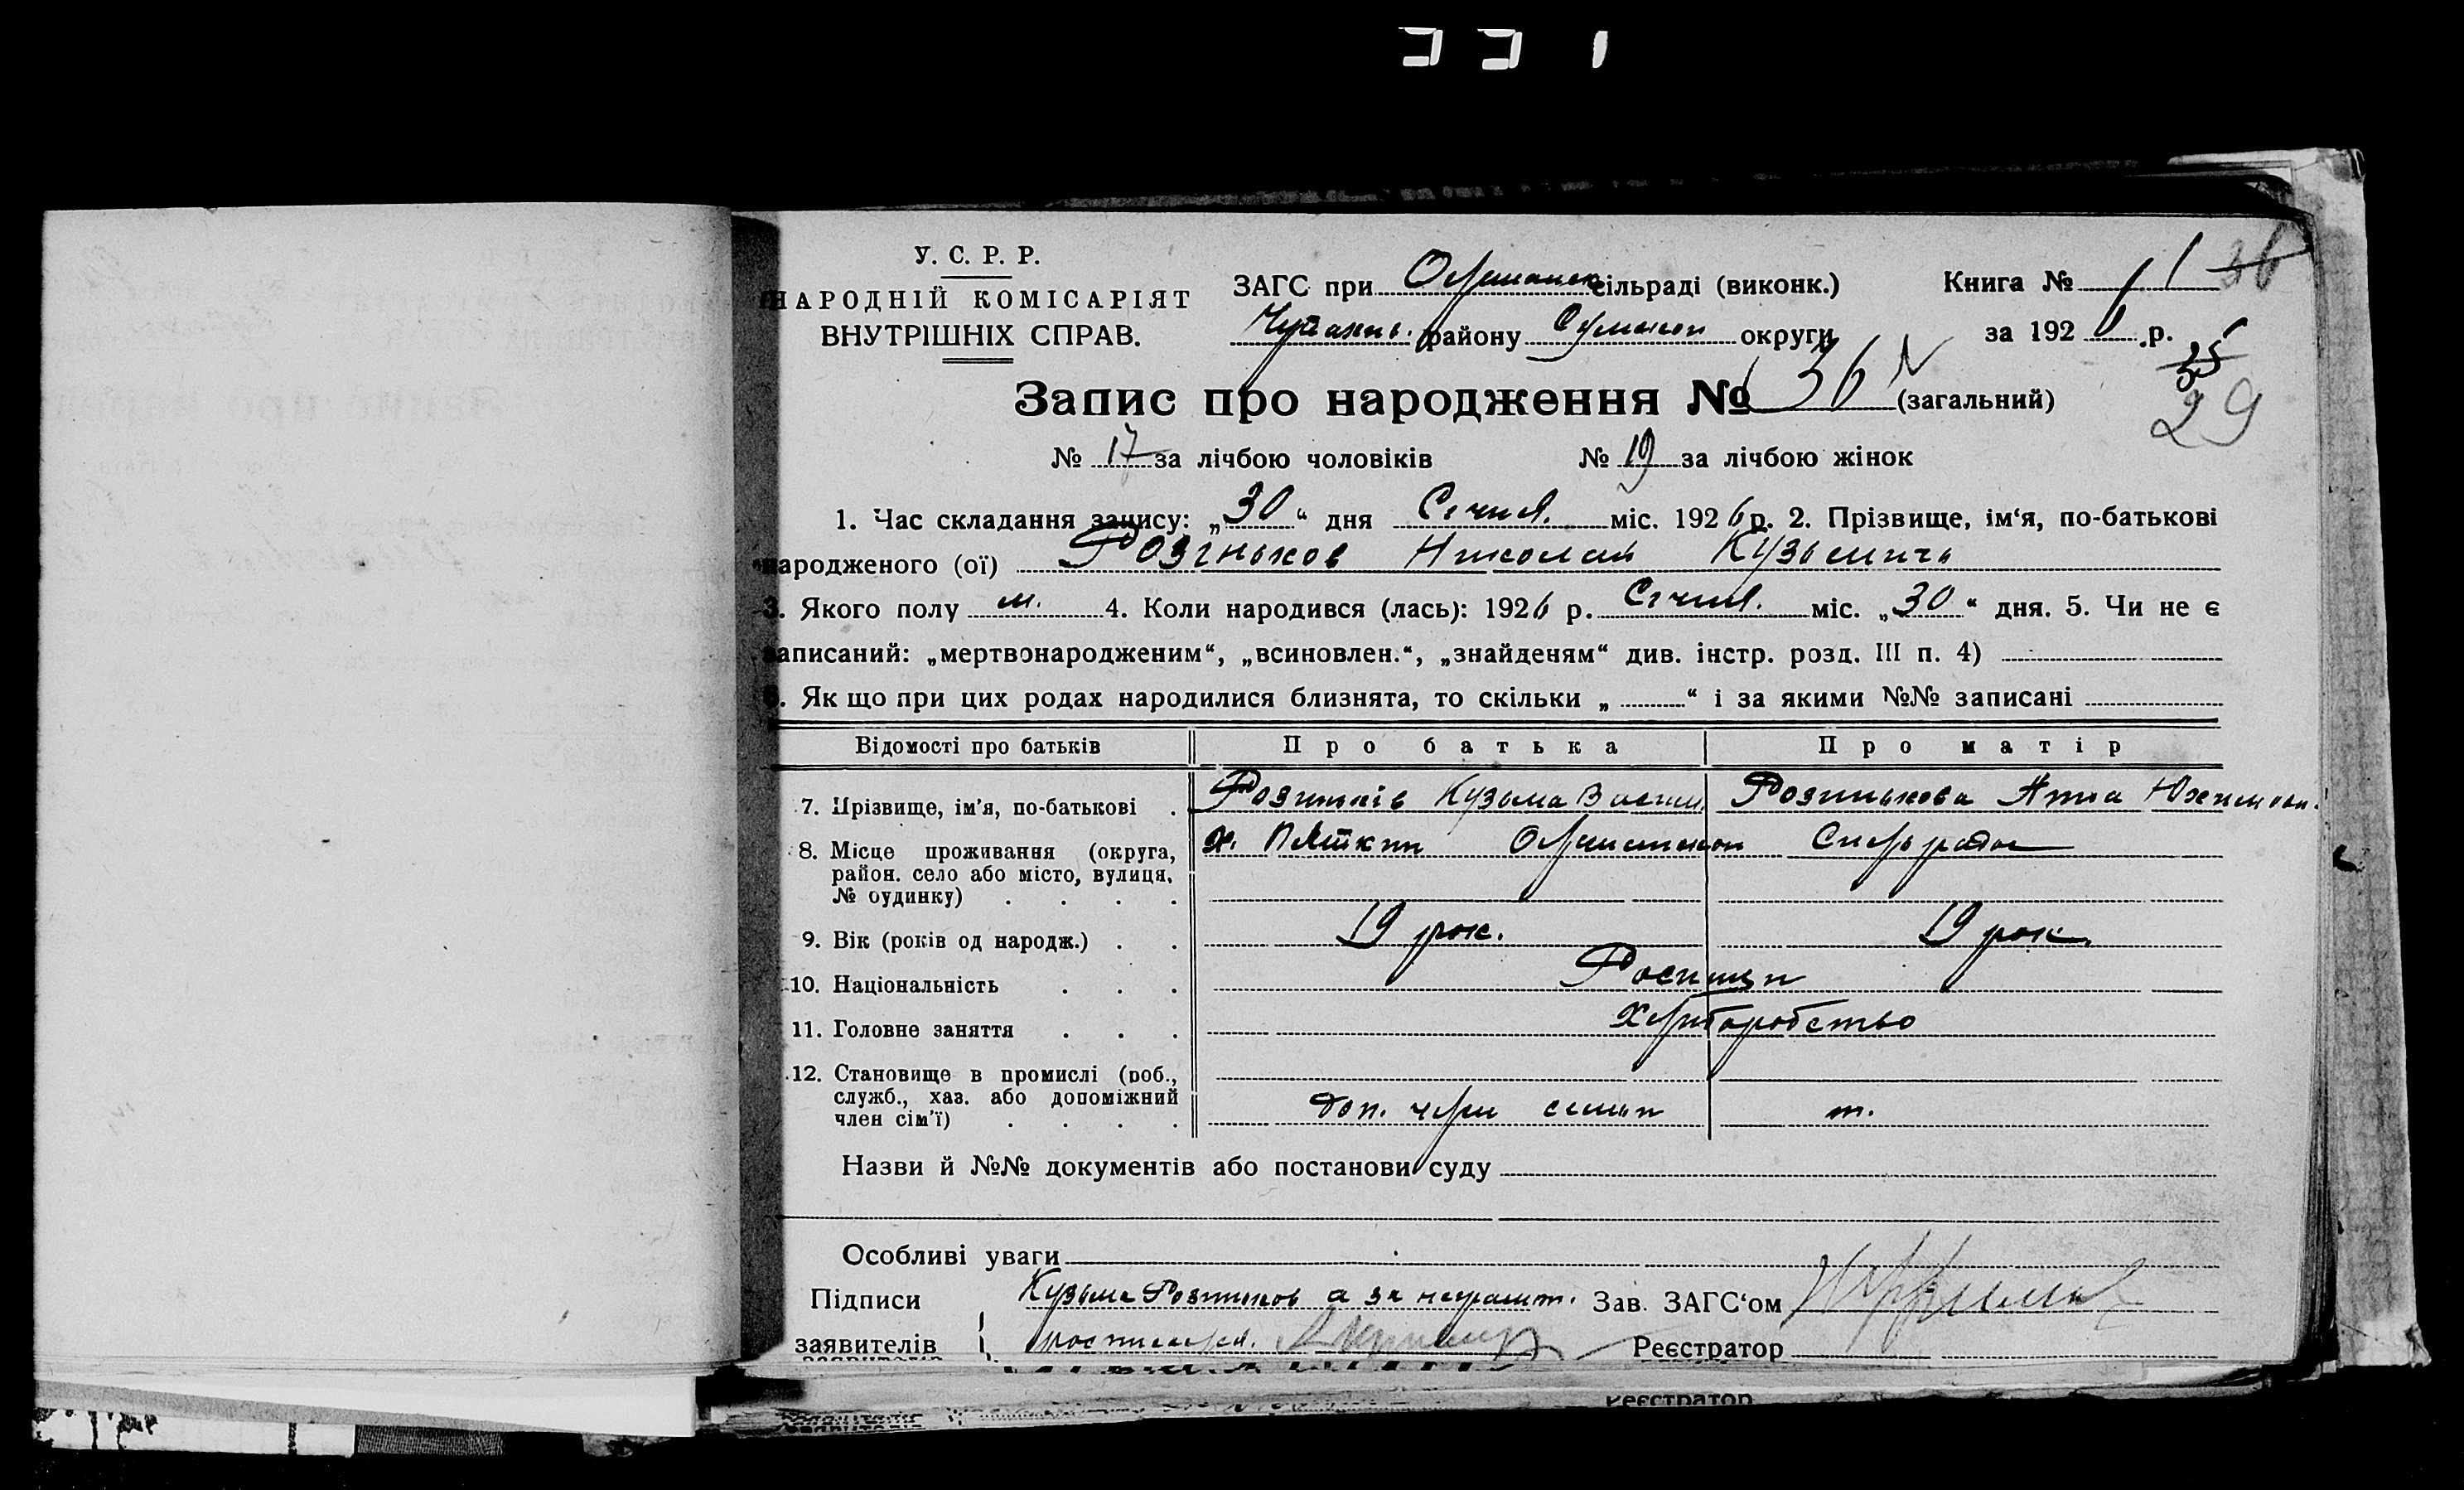 У. С. Р. Р.
НАРОДНІЙ КОМІСАРІЯТ
ВНУТРІШНІХ СПРАВ.
ЗАГС при сільраді (виконк.)
району округи
Книга № 1 36
за 1926 р.
35
29
Запис про народження № 36 (загальний)
№ 17 за лічбою чоловіків № 19 за лічбою жінок
1. Час складання запису: „30“ дня Січня. міс. 1926 р. 2. Прізвище, ім‘я, по-батькові
народженого (ої) Розіньков Николай Кузьмичь
3. Якого полу м. 4. Коли народився (лась): 1926 р. Січня. міс. „30“ дня. 5. Чи не є
записаний: „мертвонародженим“, „всиновлен.“, „знайденям“ див. інстр. розд. III п. 4)
6. Як що при цих родах народилися близнята, то скільки „ “ і за якими №№ записані
Відомості про батьків Про батька Про матір
7. Прізвище, ім'я, по-батькові Розиньків Кузьма Васил. Розинькова Анна
8. Місце проживання (округа, х. Пяткин Сильради
район. село або місто, вулиця,
№ будинку)
9. Вік (років од народж.) 19 рок. 19 рок.
10. Національність Росияни
11. Головне заняття Хліборобство
12. Становище в промислі (роб.,
служб., хаз. або допоміжний
член сім'ї) доп. член семьи т.
Назви й №№ документів або постанови суду
Особливі уваги
Підписи Кузьма Розиньков а за неграмт. Зав. ЗАГС‘ом
заявителів росписался. Реєстратор
Реєстратор